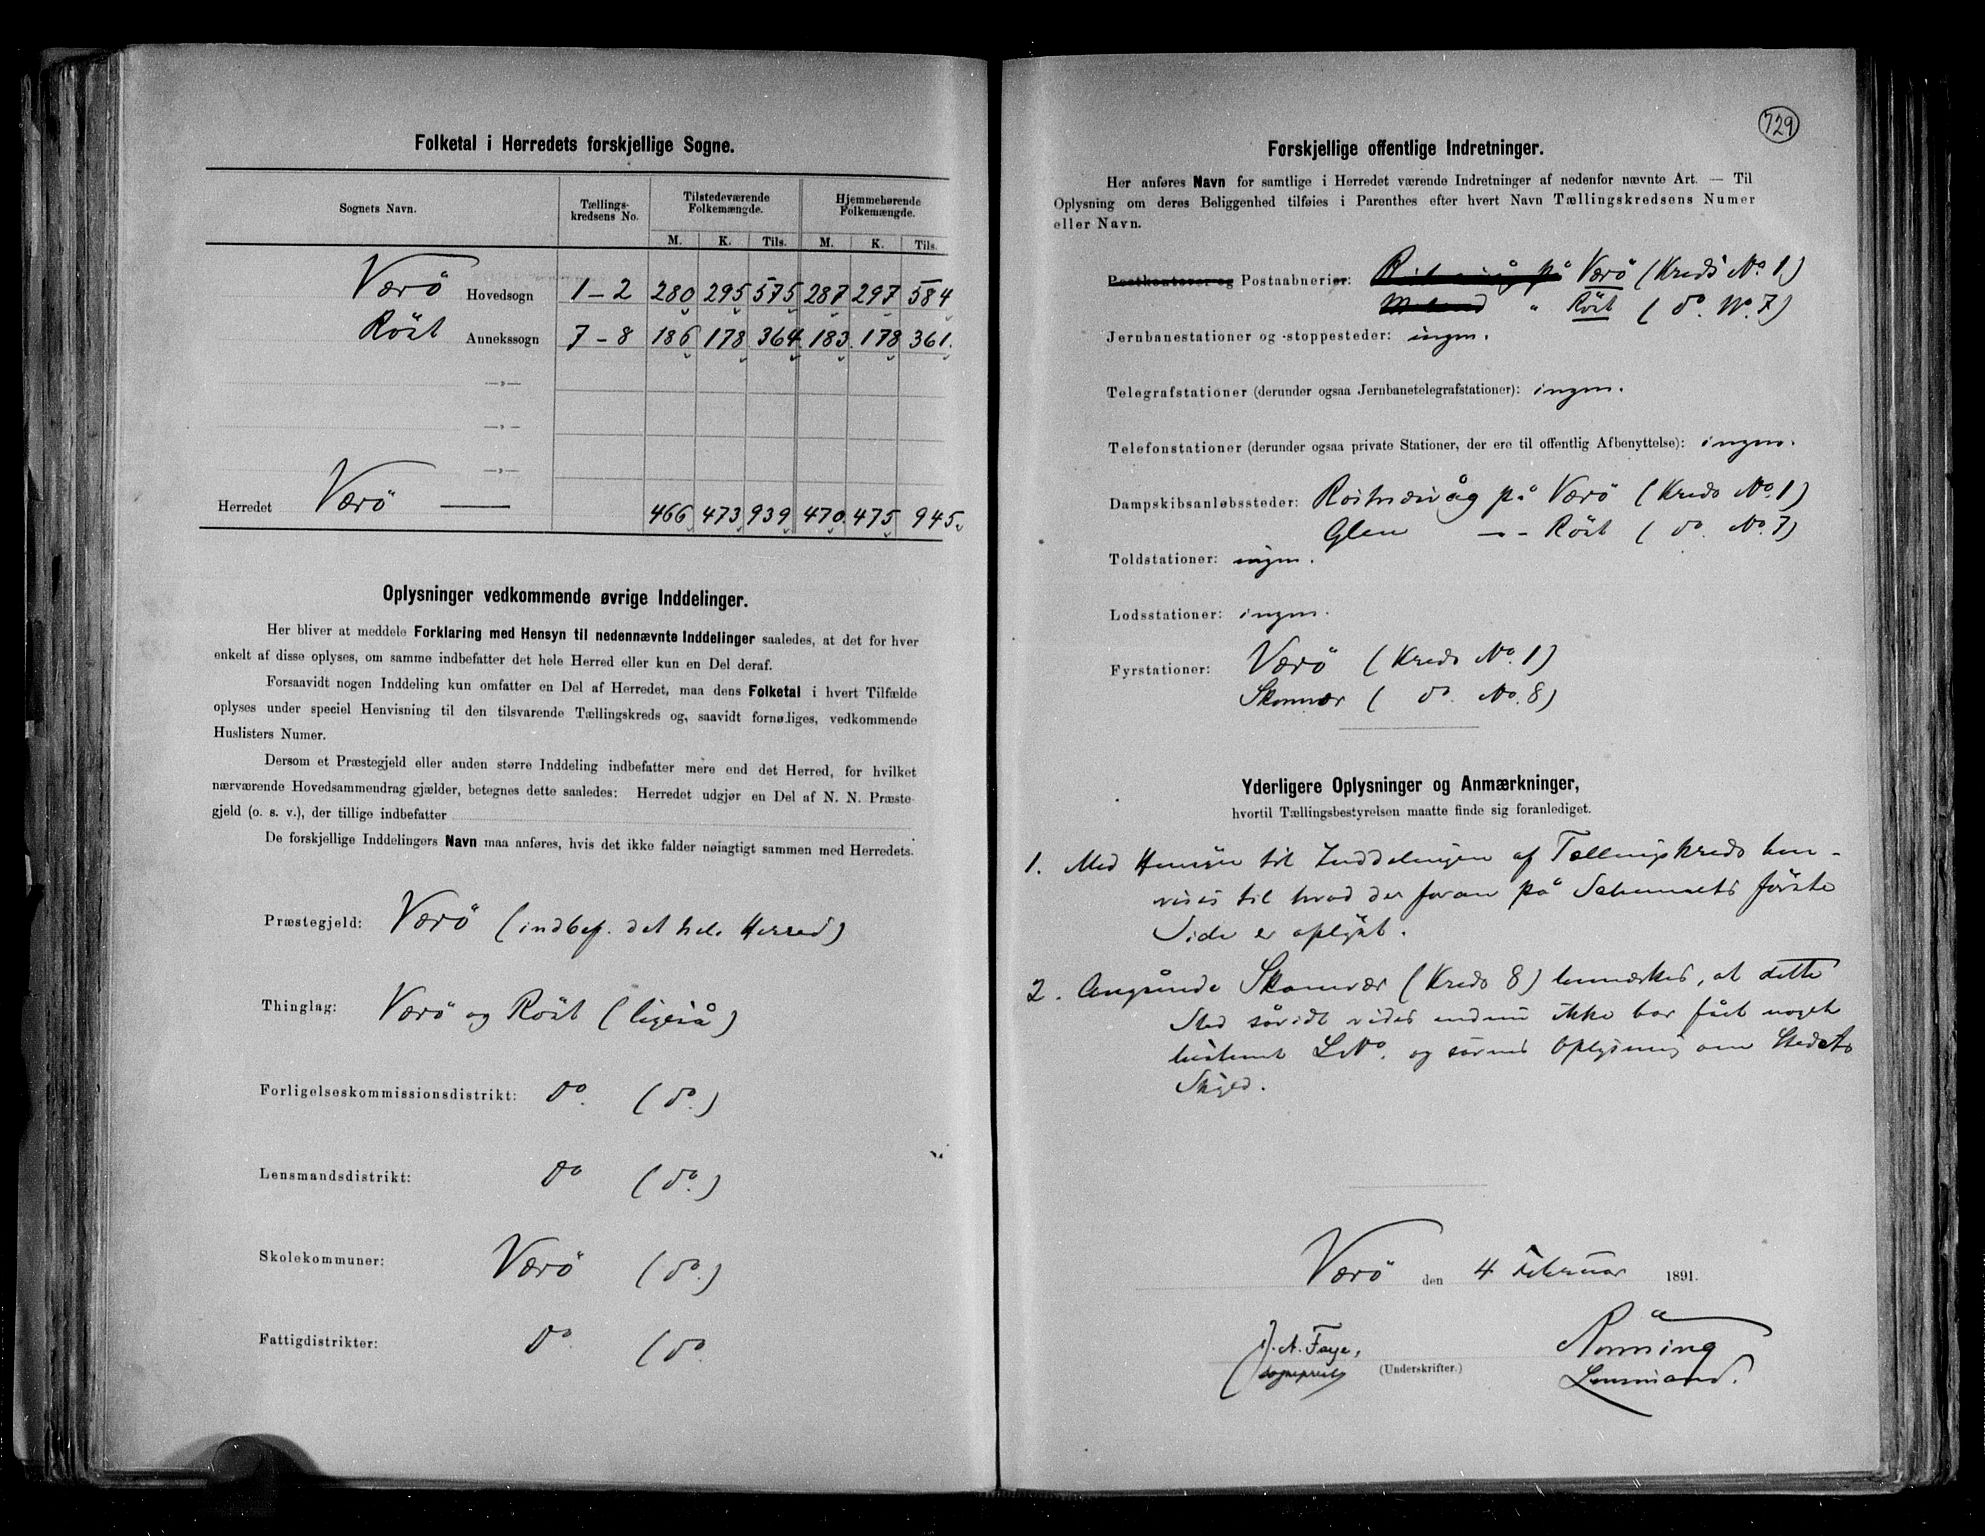 Folketal i Herredets forskjellige Sogne.
Sognets Navn. Tællings-kredsens No. Tilstedeværende Folkemængde. Hjemmehørende Folkemængde.
M. K. Tils. M. K. Tils.
Værö Hovedsogn 1-2 280 295 575 287 297 584
Röst Annekssogn 7-8 186 178 364 183 178 361.
—»—
—»—
—»—
Herredet Værö 466 473 939 470 475 945
Oplysninger vedkommende øvrige Inddelinger.
Her bliver at meddele Forklaring med Hensyn til nedennævnte Inddelinger saaledes, at det for hver
enkelt af disse oplyses, om samme indbefatter det hele Herred eller kun en Del deraf.
Forsaavidt nogen Inddeling kun omfatter en Del af Herredet, maa dens Folketal i hvert Tilfælde
oplyses under speciel Henvisning til den tilsvarende Tællingskreds og, saavidt fornøliges, vedkommende
Huslisters Numer.
Dersom et Præstegjeld eller anden større Inddeling indbefatter mere end det Herred, for hvilket
nærværende Hovedsammendrag gjælder, betegnes dette saaledes: Herredet udgjør en Del af N. N. Præste-
gjeld (o. s. v.), der tillige indbefatter
De forskjellige Inddelingers Navn maa anføres, hvis det ikke falder nøiagtigt sammen med Herredets.
Præstegjeld: Værö (indbef. det hele Herred)
Thinglag: Værö og Röst (ligeså)
Forligelseskommissionsdistrikt: do. (do.)
Lensmandsdistrikt: do (do.)
Skolekommuner: Værö (do.)
Fattigdistrikter: do. (do.
729
Forskjellige offentlige Indretninger.
Her anføres Navn for samtlige i Herredet værende Indretninger af nedenfor nævnte Art. — Til
Oplysning om deres Beliggenhed tilføies i Parenthes efter hvert Navn Tællingskredsens Numer
eller Navn.
Postkontorer og Postaabnerier: på Værö (Kreds No. 1)
" Röst (do. No. 7)
Jernbanestationer og -stoppesteder: ingen.
Telegrafstationer (derunder ogsaa Jernbanetelegrafstationer): ingen.
Telefonstationer (derunder ogsaa private Stationer, der ere til offentlig Afbenyttelse): ingen.
Dampskibsanløbssteder: Röstnæsvåg på Værö (Kreds No. 1)
Glea - - Röst (do. No. 7)
Toldstationer: ingen.
Lodsstationer: ingen.
Fyrstationer: Værö (Kreds No. 1)
Skomvær (do. No. 8)
Yderligere Oplysninger og Anmærkninger,
hvortil Tællingsbestyrelsen maatte finde sig foranlediget.
1. Med Hensyn til Inddelingen af Tællingskreds hen-
vises til hvad der foran på Schemaets förste
Side er oplyst.
2. Angående Skomvær (Kreds 8) bemærkes, at dette
Sted såvidt vides endnu ikke har fået noget
bestemt L. No. og savnes Oplysning om Stedets
Skyld.
Værö den 4 Februar 1891.
J. A. Faye, Rönning
sogneprest (Underskrifter.) Lensmand.